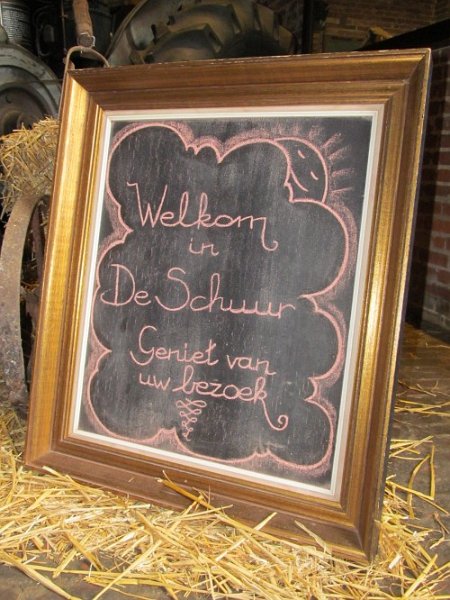 Welkom
in
De Schuur
Geniet van
uw bezoek